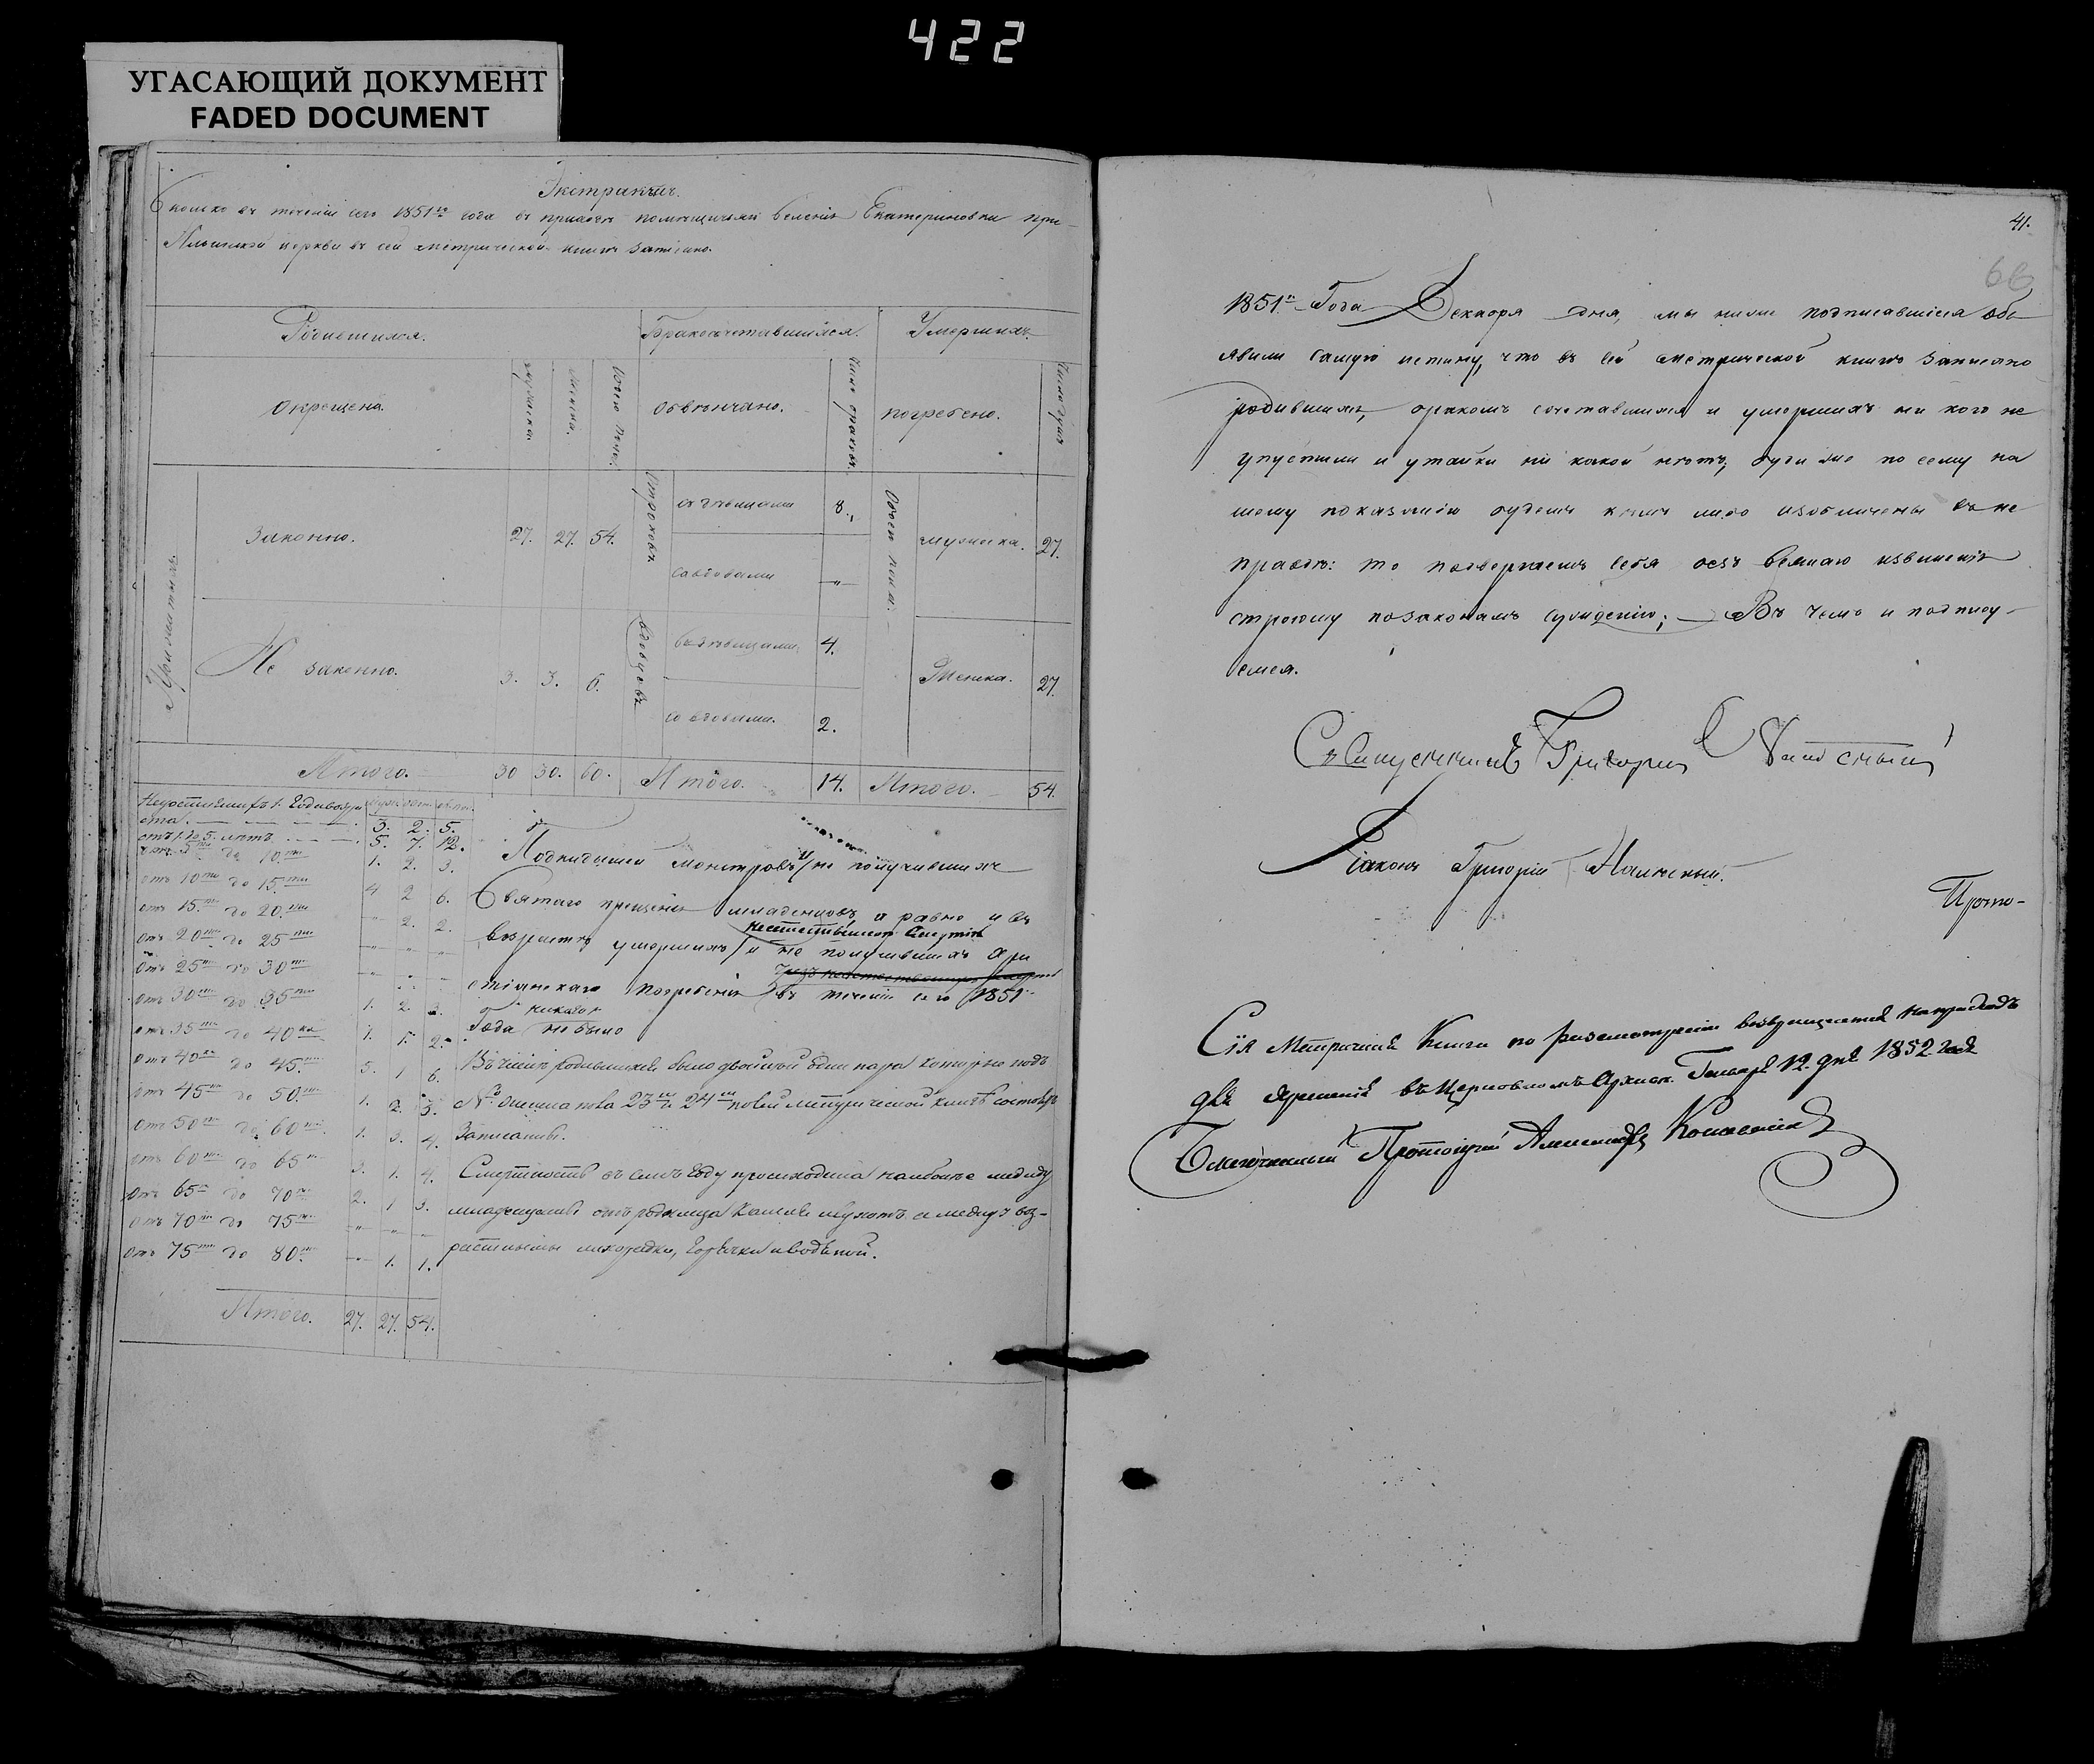 422
УГАСАЮЩИЙ ДОКУМЕНТ
FADED DOCUMENT
Экстрактъ.
Сколько въ теченіи сего 1851го года въ приходѣ помѣщичьяго селенія Екатериновки при
Ильинской церкви въ сей метрической книгѣ записано.
Родившихся. Бракосочетавшихся. Умершихъ.
Окрещено. мужеска. женска. всего обвѣнчано. число браковъ. погребено. число душъ
Прижитыхъ.
Законно. 27. 27. 54.
Не законно. 3. 3. 6.
Отроковъ
съ дѣвицами 8.
со вдовами —„
Вдовцовъ
съ дѣвицами 4.
со вдовами. 2.
Обоего пола.
мужеска. 27.
Женска. 27.
Итого. 30 30. 60. Итого. 14. Итого. 54.
3. 2. 5.
отъ 1. до 5. лѣтъ 5. 7. 12.
отъ 5ти до 10ти 1. 2. 3.
отъ 10ти до 15ти 4 2 6.
отъ 15ти до 20ти „ 2. 2.
отъ 20ти до 25ти
отъ 25ти до 30ти
отъ 30ти до 35ти 1. 2. 3.
отъ 35ти до 40ка 1. 1. 2.
отъ 40ка до 45ти 5. 1 6.
отъ 45ти до 50ти 1. 2. 3.
отъ 50ти до 60ти 1. 3. 4.
отъ 60ти до 65ти 3. 1. 4.
отъ 65ти до 70ти 2. 1 3.
отъ 70ти до 75ти „ „ „
отъ 75ти до 80ти „ 1. 1.
Итого. 27. 27. 54.
Подкидышей монстровъ, и не получившихъ
Святаго крещенія младенцовъ а равно и въ
возрастѣ умершихъ неестественною смертію и не получившихъ Хри
стіанскаго погребенія въ теченіи сего 1851
Года никого не было
Въ числѣ родившихся было двойней одна пара которые подъ
№ 23 и 24 по сей метрической книгѣ
Записаны.
Смертность въ семъ году происходила наиболѣе между
младенцами отъ родимца кашля а между воз-
растными лихорадки, горячки и водяной.
41.
66
1851го Года Декабря дня, мы ниже подписавшіеся объ
явили самую истину, что въ сей метрической книгѣ записано
родившихся, бракомъ сочетавшихся и умершихъ ни кого не
упустили и утайки ни какой нѣтъ; буди же по сему на
шему показанію будемъ кѣмъ либо изобличены въ не
правдѣ: то подвергаемъ себя безъ всякаго извиненія
строгому по законамъ сужденію; — Въ чемъ и подпису-
емся.
Священникъ Григорій
Діаконъ Григорій
Прото-
Сія Метричная Книга по разсмотреніи возвращается на приходъ
для храненія въ Церковномъ Архиве. Генваря 12. дня 1852 года
Благочинный Протоіерей Александръ